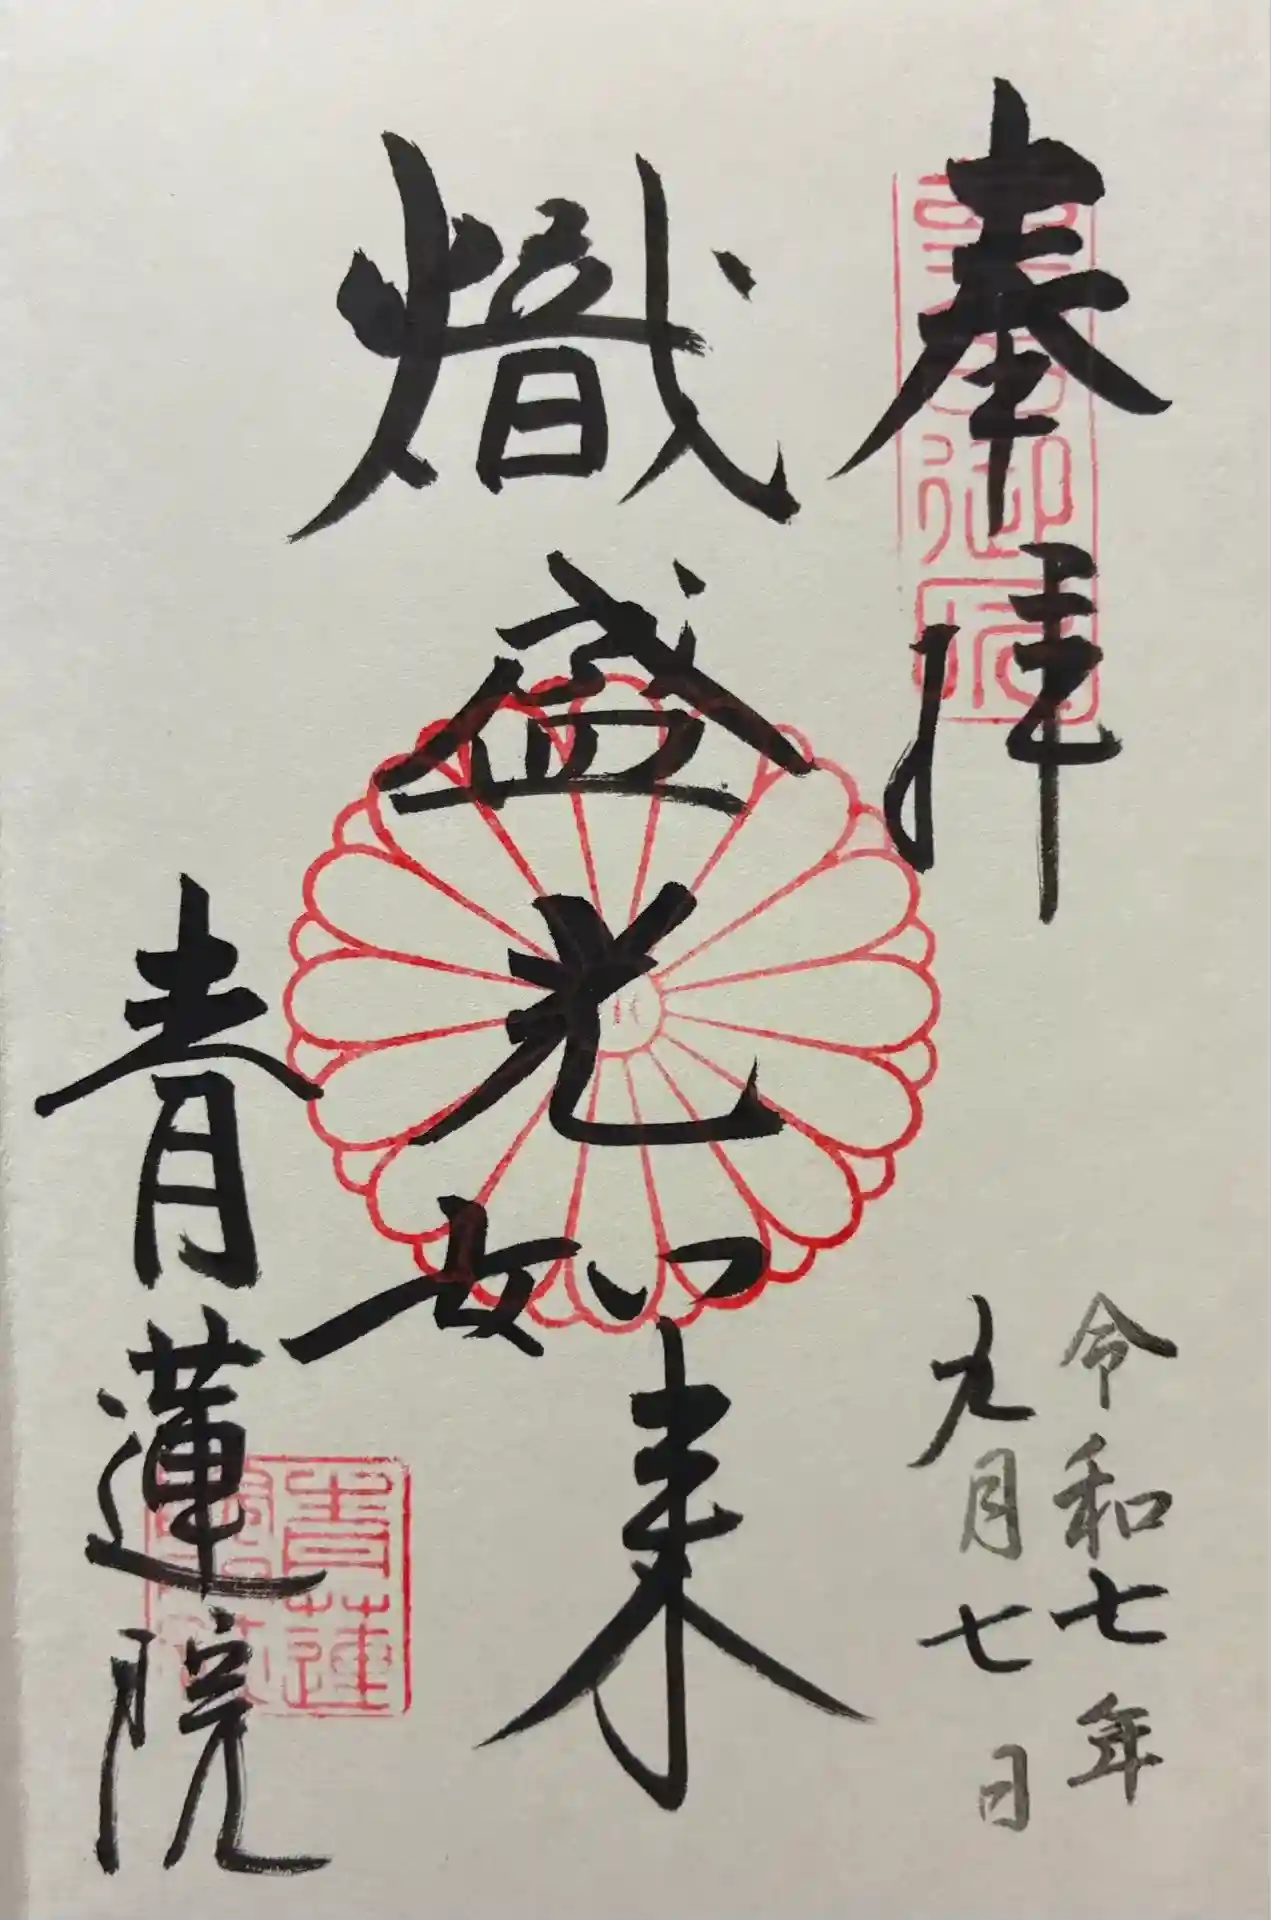 奉拝
令和七年
九月七日
熾盛光如来
青蓮院
青蓮